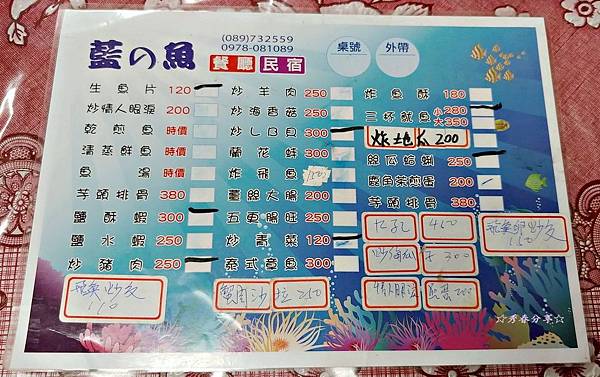 (089)732559
0978-081089
藍の魚
餐廳民宿
桌號
外帶
生魚片 120
炒情人眼淚 200
乾煎魚 時價
清蒸鮮魚 時價
魚湯 時價
芋頭排骨 380
鹽酥蝦 300
鹽水蝦 250
炒豬肉 250
飛魚炒飯
炒羊肉 250
炒海香菇 250
炒L日貝 300
蘭花蚌 300
炸飛魚
薑絲大腸 200
五更腸旺 250
炒青菜 120
泰式章魚 300
蟹肉沙拉 250
炸魚酥 180
三杯魷魚 小280
大350
炸地瓜 200
絲瓜蛤蜊 250
鹽角菜煎蛋 200
芋頭排骨 380
九孔 450
300
情人眼淚 200
飛魚卵炒飯
150
☆秀春分享☆